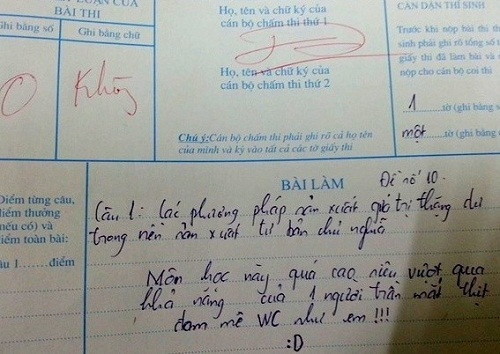 KẾT LUẬN CỦA
BÀI THI
Ghi bằng số
Ghi bằng chữ
0
Không
Họ, tên và chữ ký của
cán bộ chấm thi thứ 1
Họ, tên và chữ ký của
cán bộ chấm thi thứ 2
Chú ý: Cán bộ chấm thi phải ghi rõ cả họ tên
của mình và ký vào tất cả các tờ giấy thi
CĂN DẶN THÍ SINH
Trước khi nộp bài thi th
sinh phải ghi rõ tổng số t
giấy thi đã làm bài và
nộp cho cán bộ coi thi
1 tờ (ghi bằng
một tờ (ghi bằng
Điểm từng câu,
điểm thưởng
(nếu có) và
điểm toàn bài:
âu 1.......điểm
BÀI LÀM
Đề số 10.
Câu 1: Các phương pháp sản xuất giá trị thặng dư
trong nền sản xuất tư bản chủ nghĩa
Môn học này quá cao siêu vượt qua
khả năng của 1 người trần mắt thịt
đam mê WC như em !!!
:D